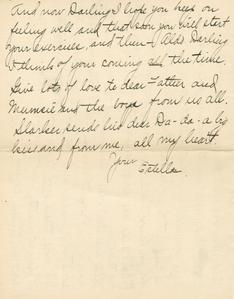 And now Darling I hope you keep on
feeling well and that soon you will start
your exercises, and then - Aldo Darling
I think of your coming all the time.
Give lots of love to dear Father and
Mumsie and the boys from us all.
sends his dear Da-da - a big
kiss and from me, all my heart.
Your
Estelle.